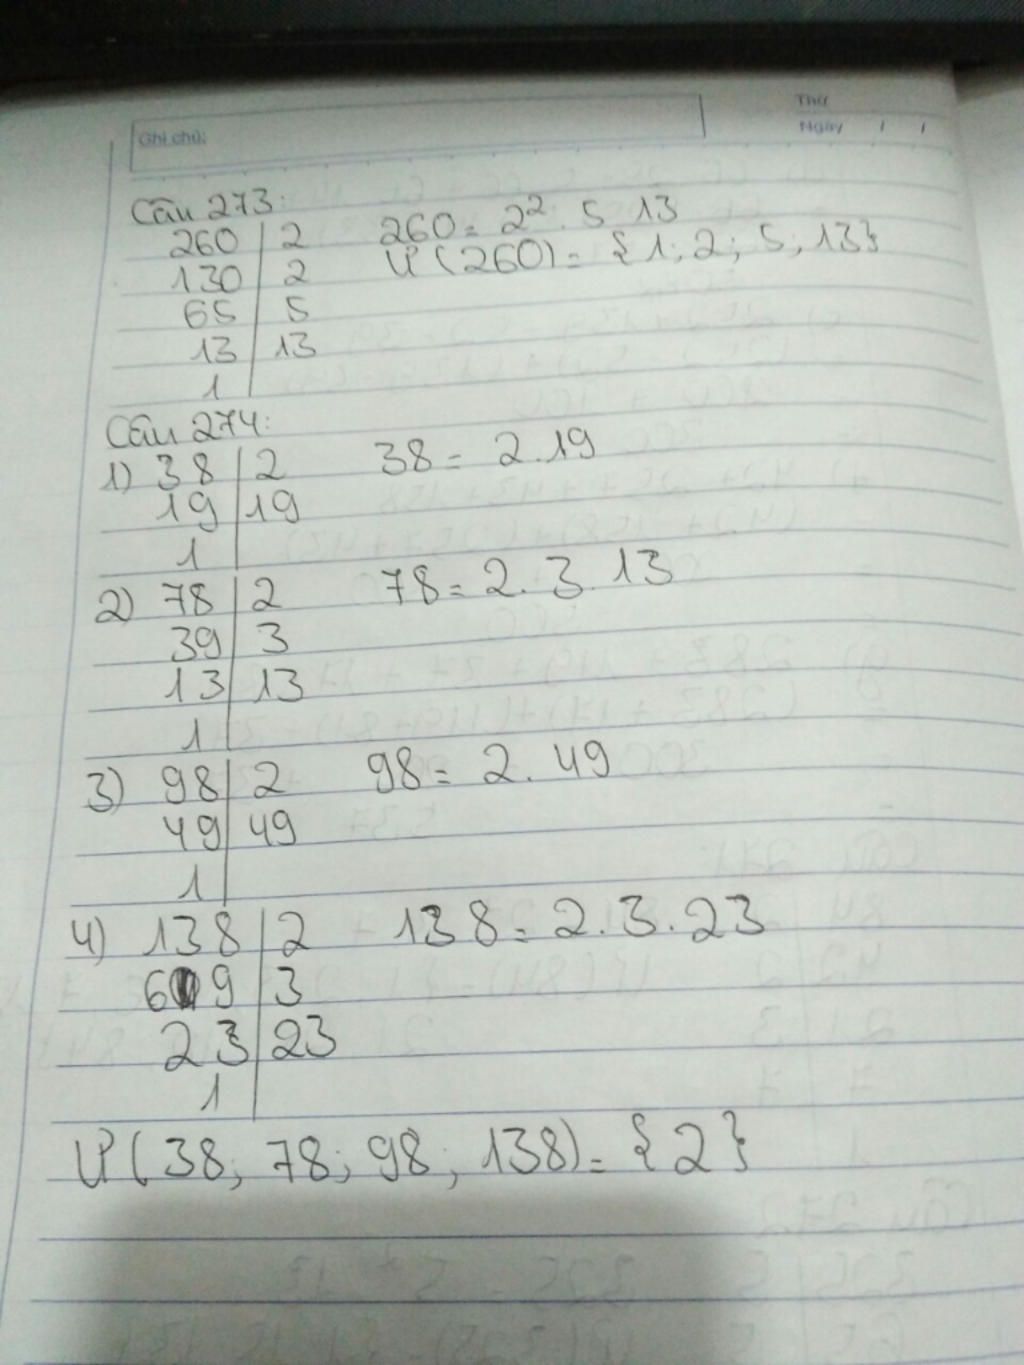 Thứ
Ghi chú:
Ngày / /
Câu 273:
260 | 2 260 = 2². 5 13
130 | 2 Ư (260) = {1; 2; 5; 13}
65 | 5
13 | 13
1 |
Câu 274:
1) 38 | 2 38 = 2.19
19 | 19
1 |
2) 78 | 2 78 = 2. 3. 13
39 | 3
13 | 13
1 |
3) 98 | 2 98 = 2. 49
49 | 49
1 |
4) 138 | 2 138 = 2. 3. 23
69 | 3
23 | 23
1 |
Ư (38; 78; 98; 138) = {2}